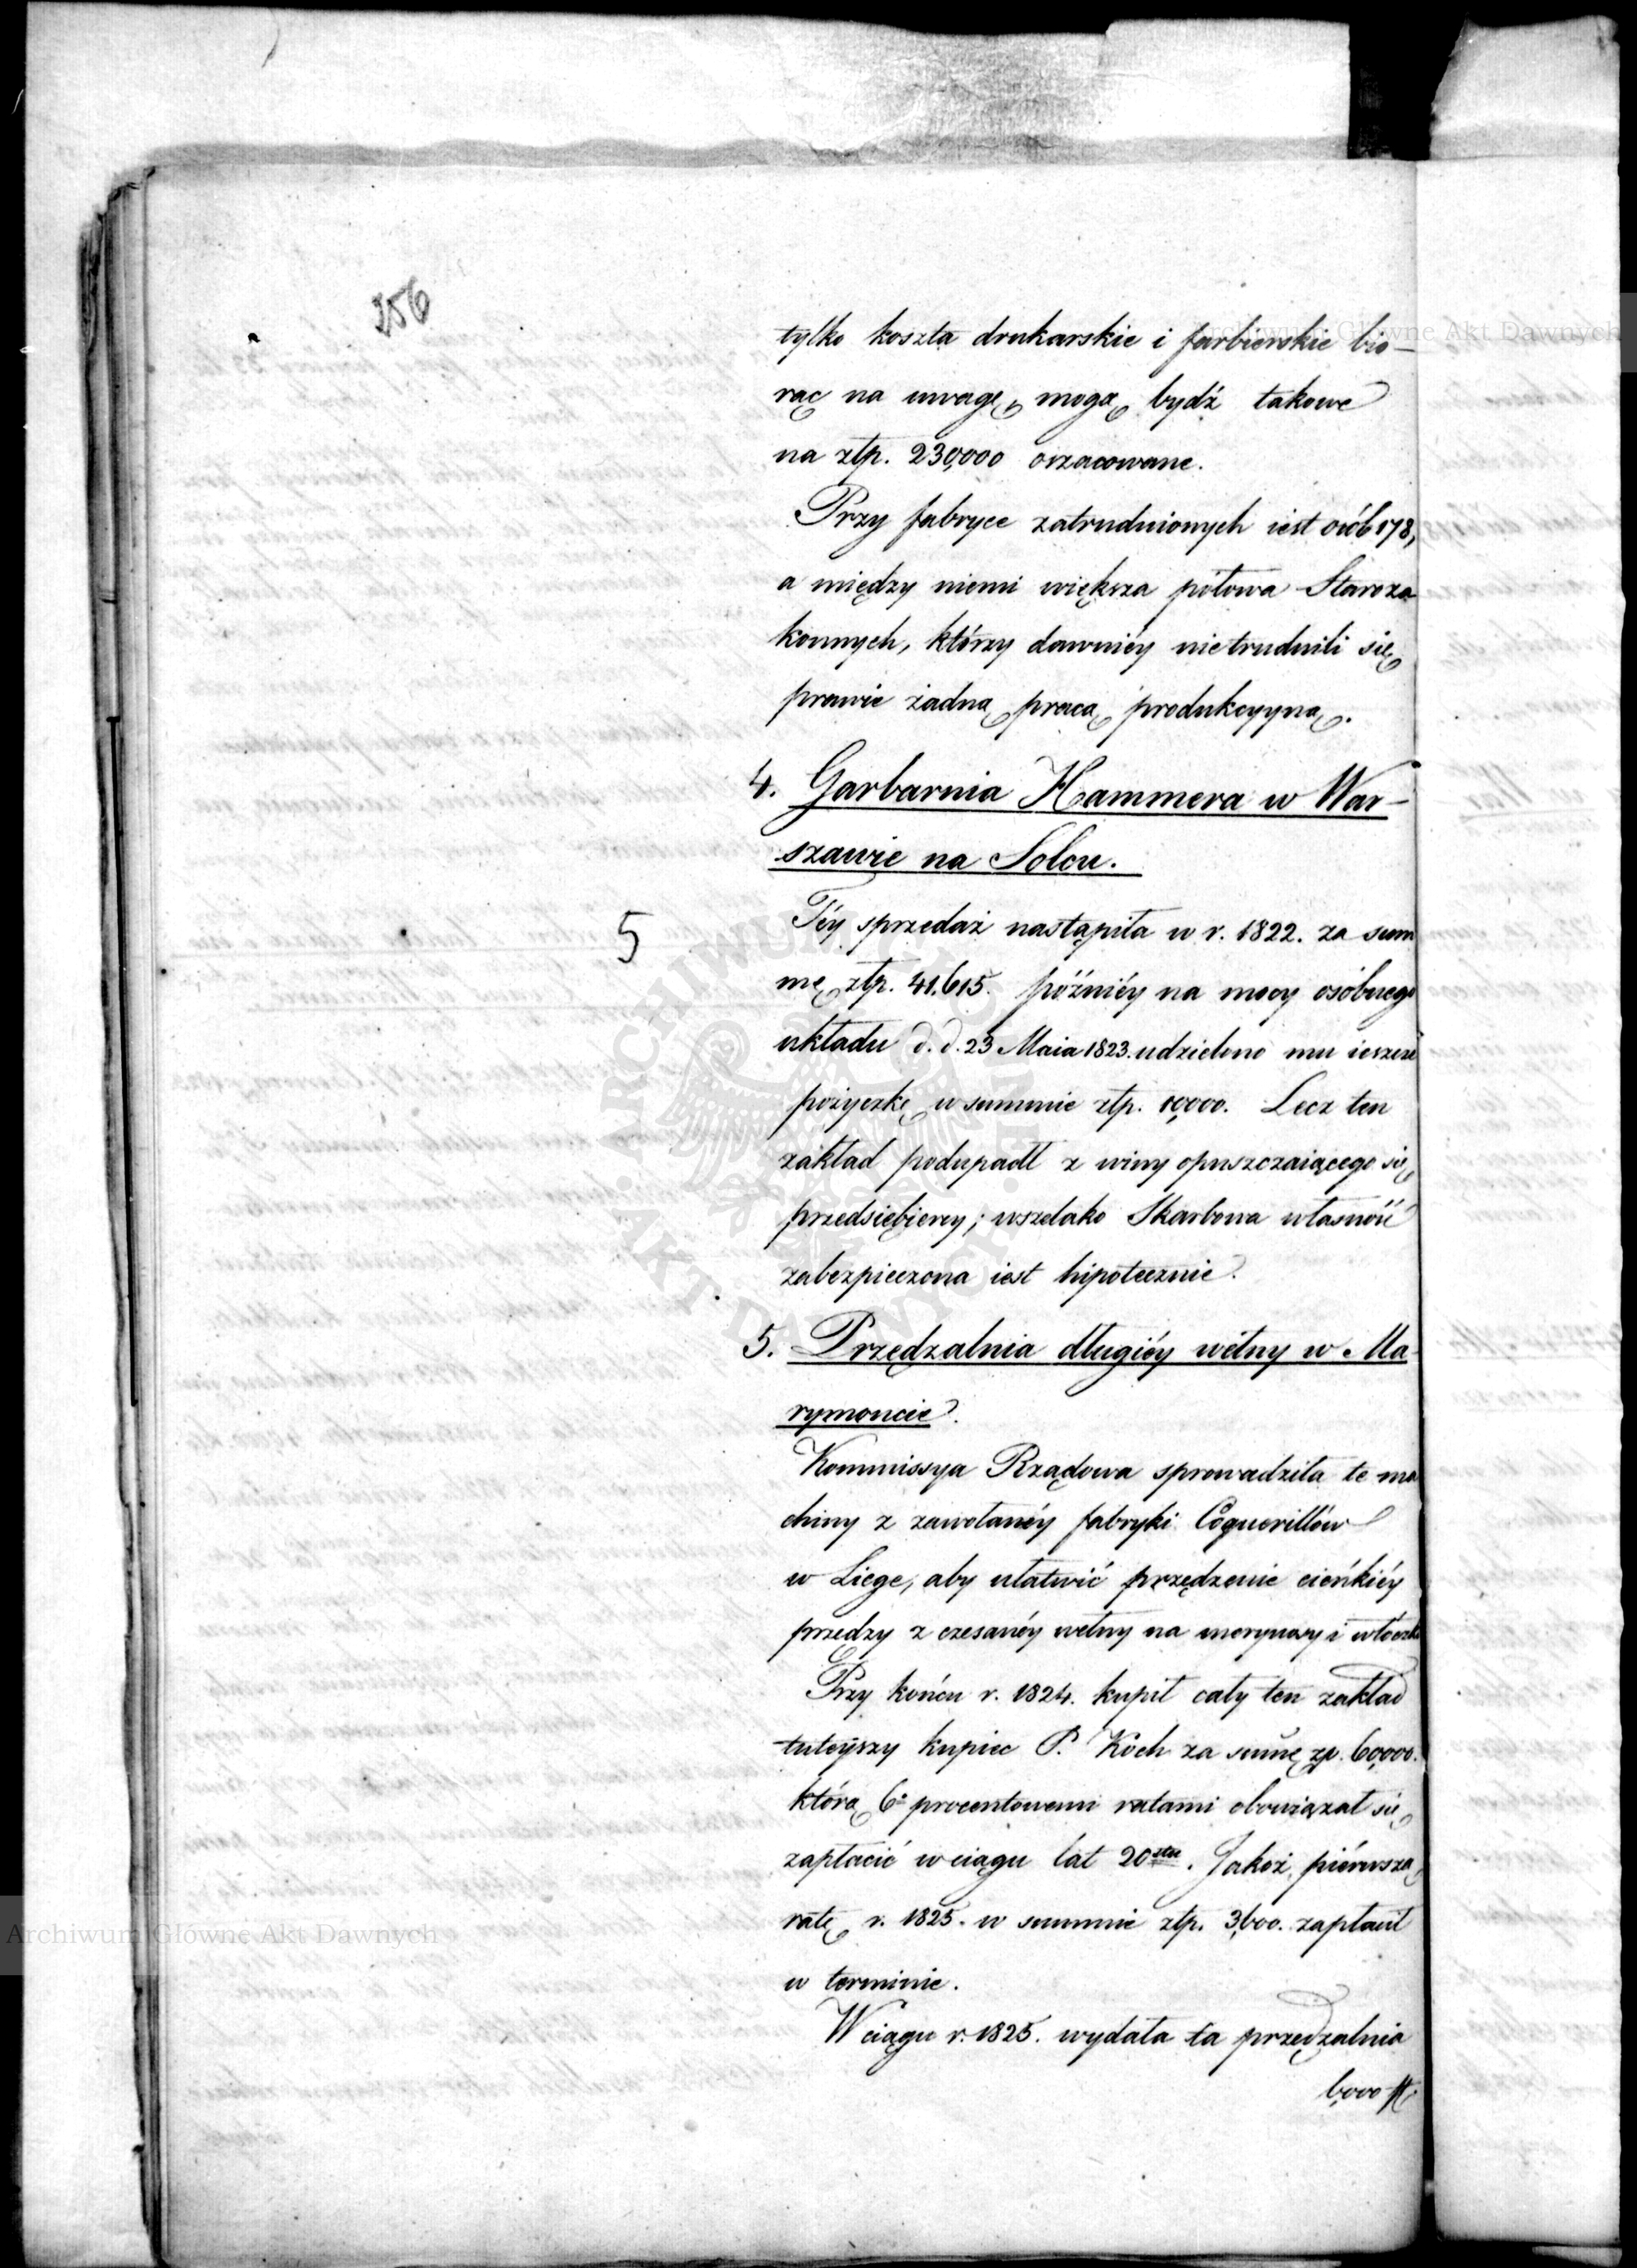 256
tylko koszta drukarskie i farbierskie bio-
rąc na uwagę, mogą bydź takowe
na złp. 230,000 oszacowane.
Przy fabryce zatrudnionych iest osób 178,
a między niemi większa połowa Staroza
konnych, którzy dawniéy nietrudnili się
prawie żadną pracą produkcyyną.
4. Garbarnia Hammera w War-
szawie na Solcu.
5
Téy sprzedaż nastąpiła w r. 1822. za sum
mę złp. 41,615. późniéy na mocy osóbnego
układu d. d. 23 Maia 1823. udzielono mu ieszcze
pożyczkę w summie złp. 10,000. Lecz ten
zakład podupadł z winy opuszczaiącego się
przedsiębiercy; wszelako Skarbowa własność
zabezpieczona iest hipotecznie.
5. Przędzalnia długiéy wełny w Ma
rymoncie.
Kommissya Rządowa sprowadziła te ma
chiny z zawołanéy fabryki Coquerillów
w Liege, aby ułatwić przędzenie cieńkiéy
przędzy z czesanéy wełny na merynosy i włóczki
Przy końcu r. 1824. kupił cały ten zakład
tuteyszy kupiec P. Koch za sumę zp. 60,000.
którą 6. procentowemi ratami obowiązał się
zapłacić w ciągu lat 20stu. Jakoż pierwszą
ratę r. 1825. w summie złp. 3,600. zapłacił
w terminie.
W ciągu r. 1825. wydała ta przędzalnia
6,000 ℔.
Archiwum Główne Akt Dawnych
Archiwum Główne Akt Dawnych
ARCHIWUM GŁÓWNE AKT DAWNYCH